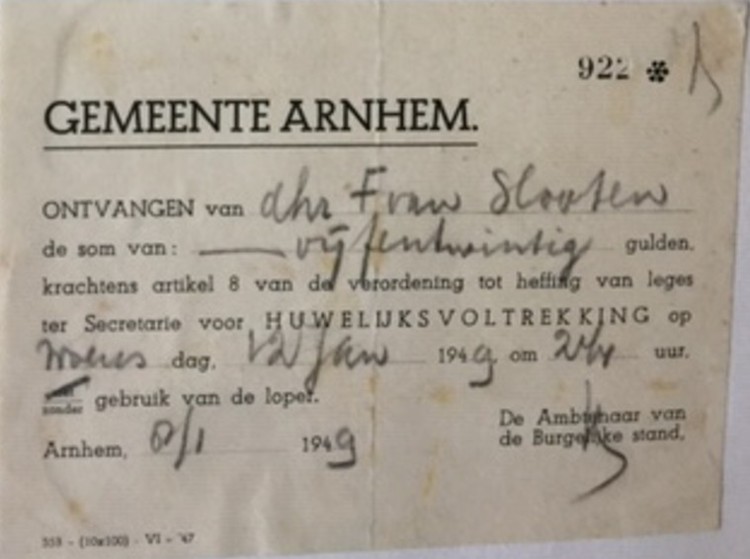 922 ✻
GEMEENTE ARNHEM.
ONTVANGEN van dhr F van Slooten
de som van: vijfentwintig gulden,
krachtens artikel 8 van de verordening tot heffing van leges
ter Secretarie voor HUWELIJKSVOLTREKKING op
Woens dag, 12 Jan 1949, om uur,
zonder gebruik van de loper.
Arnhem, 8/1 1949
De Ambtenaar van
de Burgelijke stand,
353 - (10x100) - VI - '47